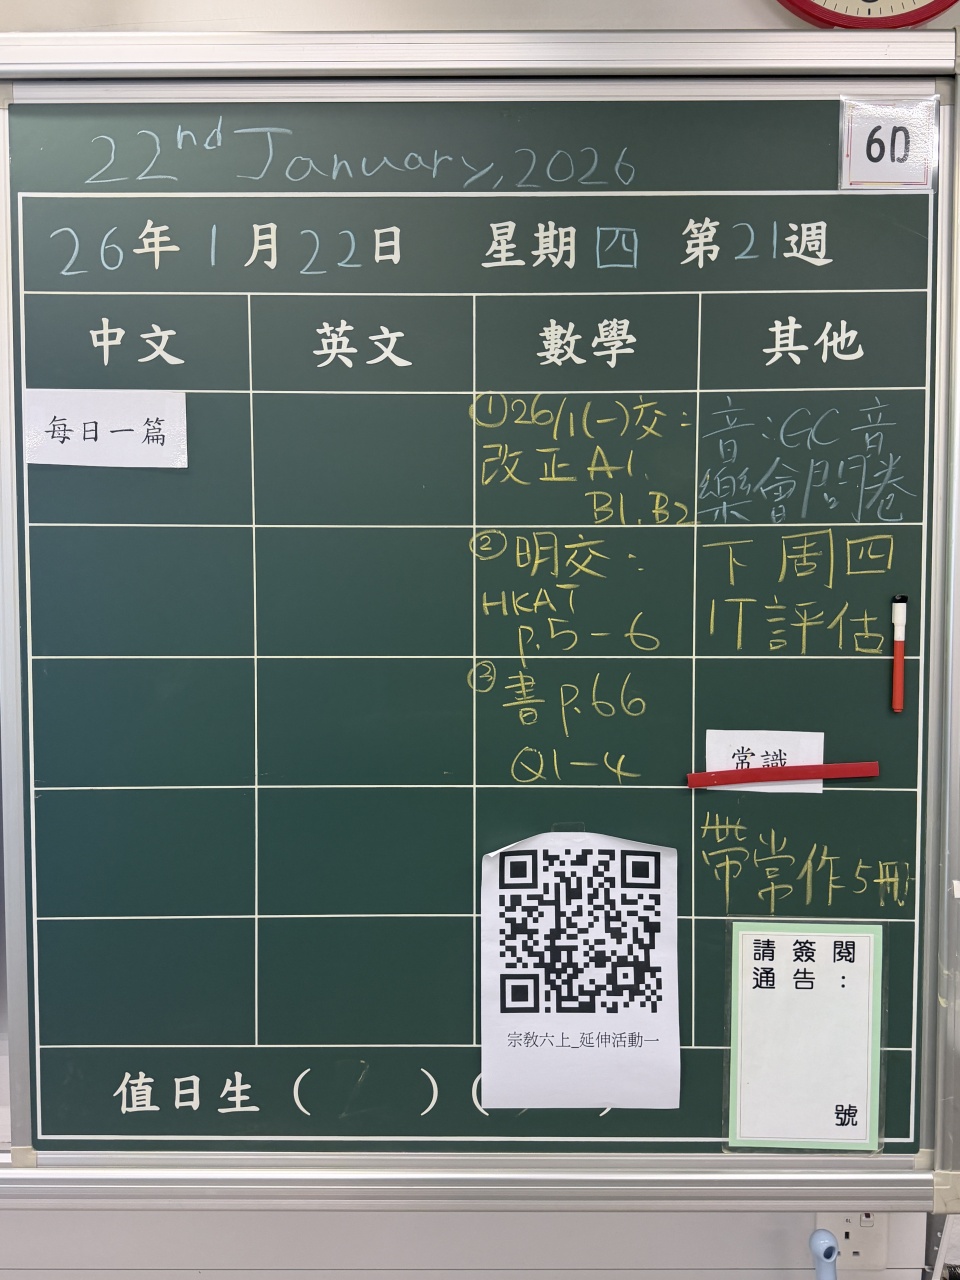 22nd January, 2026
6D
26年1月22日 星期四 第21週
中文 英文 數學 其他
每日一篇
①26/1(一)交:
改正A1.
B1.B2
②明交:
HKAT
p.5-6
③書p.66
Q1-4
音:GC音
樂會問卷
下周四
IT評估
常識
帶常作5冊
宗教六上_延伸活動一
請簽閱
通告:
號
值日生( )( )